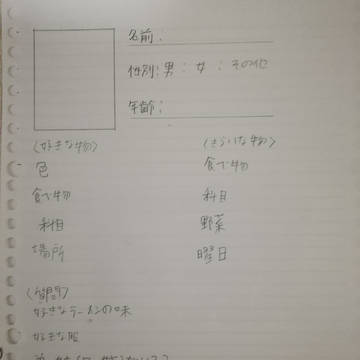 名前:
性別:男:女:その他
年齢:
〈好きな物〉 〈きらいな物〉
色 食べ物
食べ物 科目
科目 野菜
場所 曜日
〈質問〉
好きなラーメンの味
好きな服